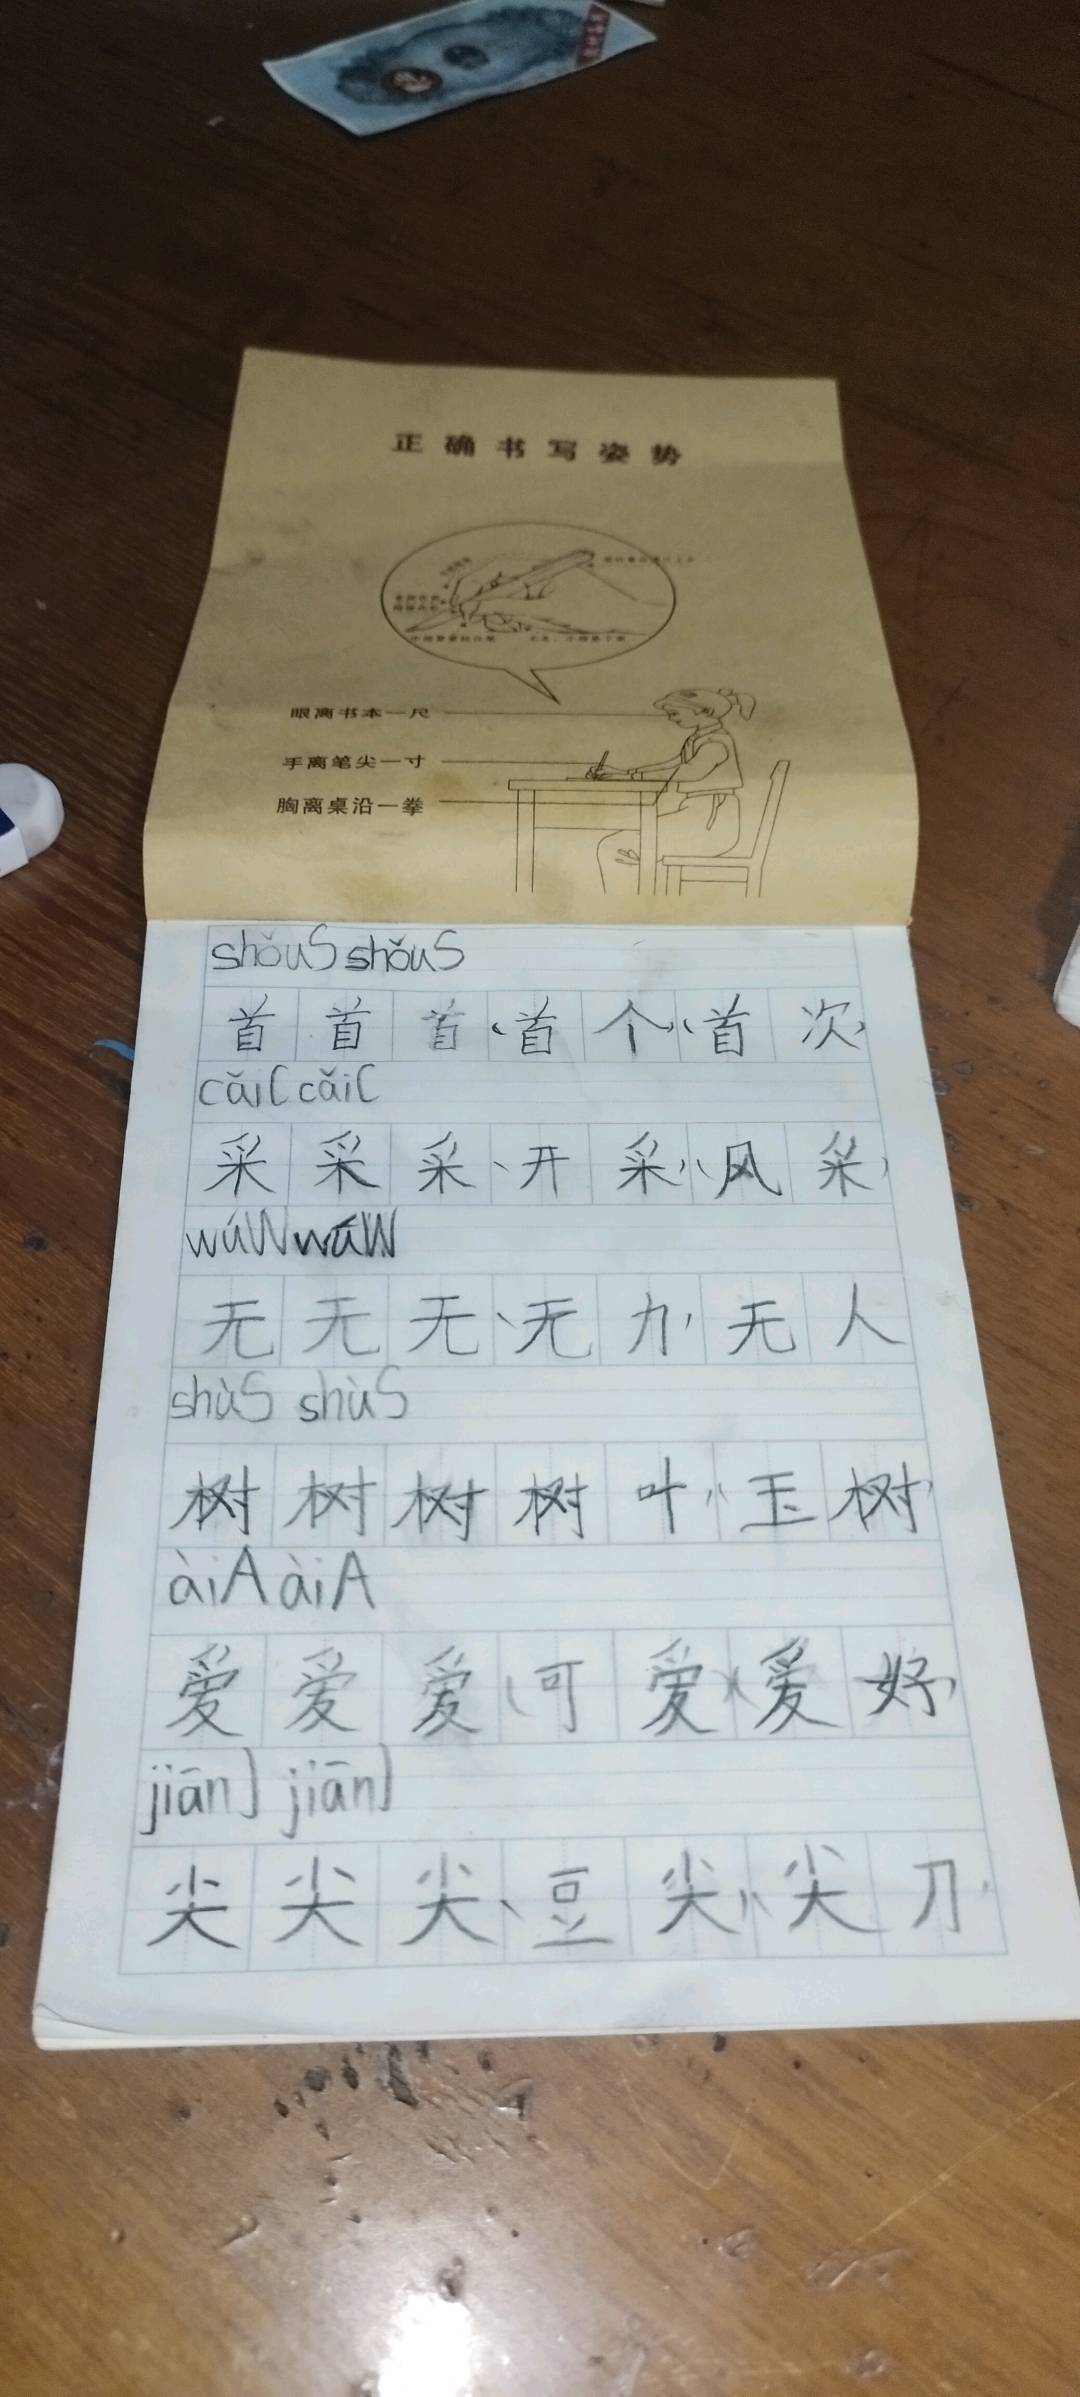 正确书写姿势
眼离书本一尺
手离笔尖一寸
胸离桌沿一拳
shǒuS shǒuS
首首首、首个、、首次、
cǎiC cǎiC
采采采、开采、、风采、
wúW wúW
无无无、无力、无人
shùS shùS
树树树树叶、、玉树、
àiA àiA
爱爱爱、可爱、、爱好、
jiānJ jiānJ
尖尖尖、豆尖、、尖刀、